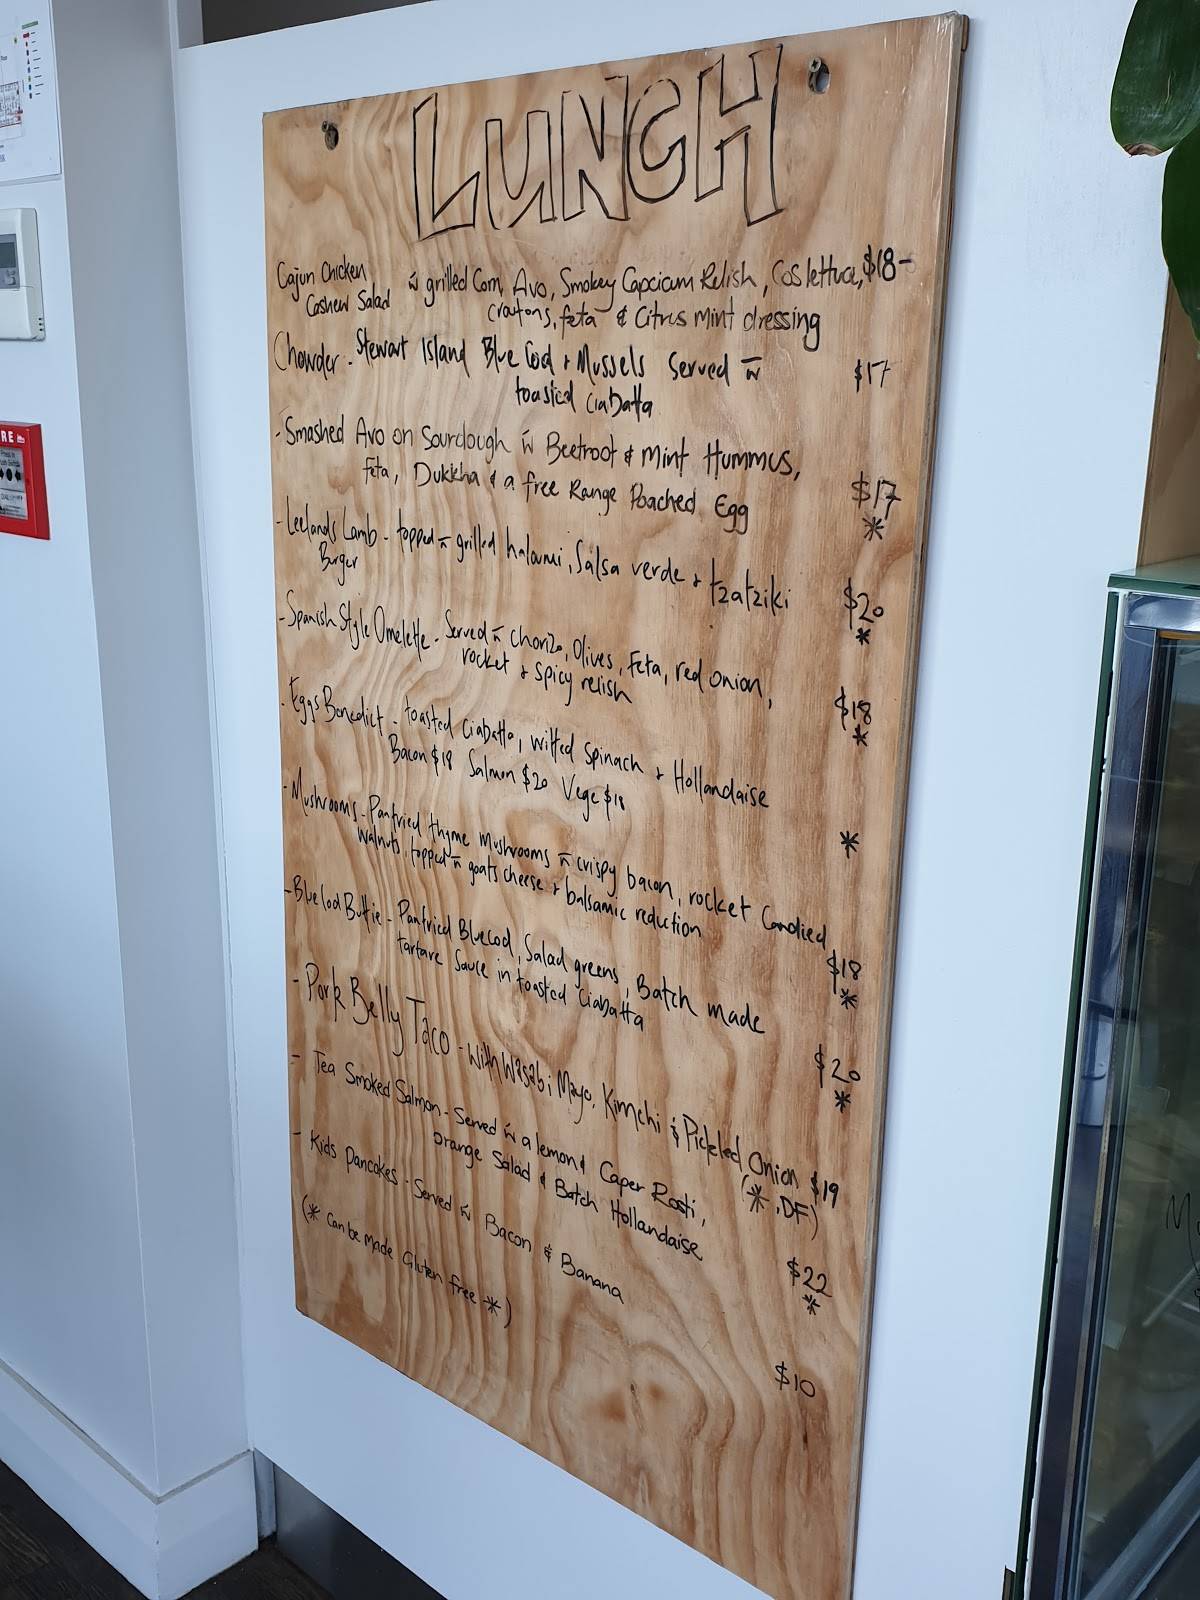 LUNCH
Cajun Chicken w̄ grilled Corn, Avo, Smokey Capcicum Relish, Cos lettuce, $18-
Cashew Salad croutons, feta & Citrus mint dressing
Chowder - Stewart Island Blue Cod + Mussels served w̄ $17
toasted ciabatta
- Smashed Avo on Sourdough w̄ Beetroot & mint Hummus,
feta, Dukkha & a free Range Poached Egg $17
*
- Leelands Lamb - topped w̄ grilled haloumi, Salsa verde + tzatziki $20
Burger *
- Spanish Style Omelette - Served w̄ chorizo, Olives, Feta, red onion,
rocket + spicy relish $18
*
- Eggs Benedict - toasted ciabatta, wilted spinach + Hollandaise
Bacon $18 Salmon $20 Vege $18
*
- Mushrooms - Panfried thyme mushrooms w̄ crispy bacon, rocket Candied
walnuts, topped w̄ goats cheese + balsamic reduction $18
*
- Blue Cod Buttie - Panfried Bluecod, Salad greens, Batch made
tartare Sauce in toasted Ciabatta $20
*
- Pork Belly Taco - with Wasabi Mayo, Kimchi & Pickled Onion $19
(*, DF)
- Tea Smoked Salmon - Served w̄ a lemon & Caper Rosti,
orange Salad & Batch Hollandaise $22
*
- Kids pancakes - Served w̄ Bacon & Banana $10
(* can be made Gluten free *)
RE